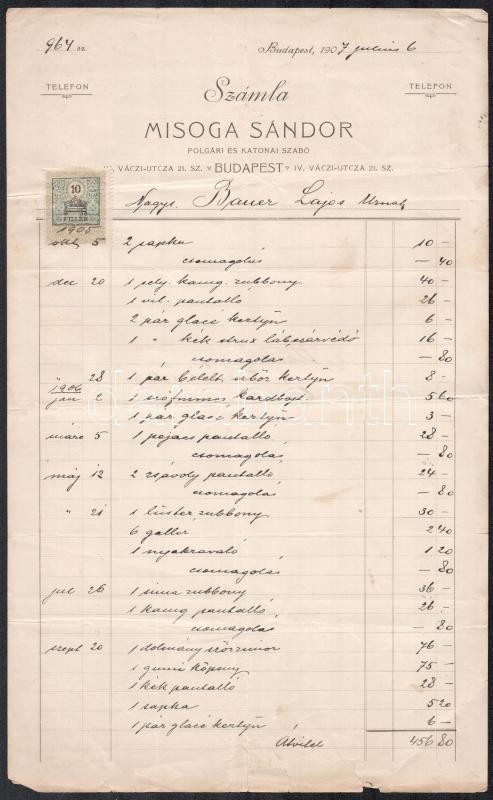 964 sz.
Budapest, 1907 julius 6
TELEFON
TELEFON
Számla
MISOGA SÁNDOR
POLGÁRI ÉS KATONAI SZABÓ
IV. VÁCZI-UTCZA 21. SZ. BUDAPEST IV. VÁCZI-UTCZA 21. SZ.
10
FILLÉR
Nagys. Bauer Lajos Urnak
1905
okt 5 2 sapka 10 –
csomagolás – 40
dec 20 1 kamg. zubbony 40 –
1 pantalló 26 –
2 pár glacé kertyü 6 –
1 " kék lábszárvédő 16 –
csomagolás – 80
" 28 1 pár bélelt kertyü 8 –
1906
jan 2 1 kardbojt 5 60
1 pár glacé kertyü 3 –
márc 5 1 pejacs pantalló 28 –
csomagolás – 80
máj 12 2 zsávoly pantalló 24 –
csomagolás – 80
" 21 1 lüster zubbony 30 –
6 gallér 2 40
1 nyakravaló 1 20
csomagolás – 80
jul 26 1 zubbony 36 –
1 kamg pantalló 26 –
csomagolás – 80
szept 20 1 dolmány 76 –
1 gumi köpeny 75 –
1 kék pantalló 28 –
1 sapka 5 20
1 pár glacé kertyü 6 –
Átvitel 456 80